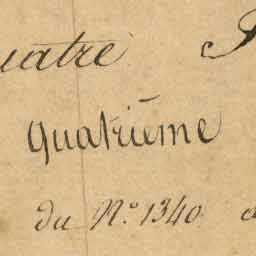 uatre
Quatrième
du N.º 1340